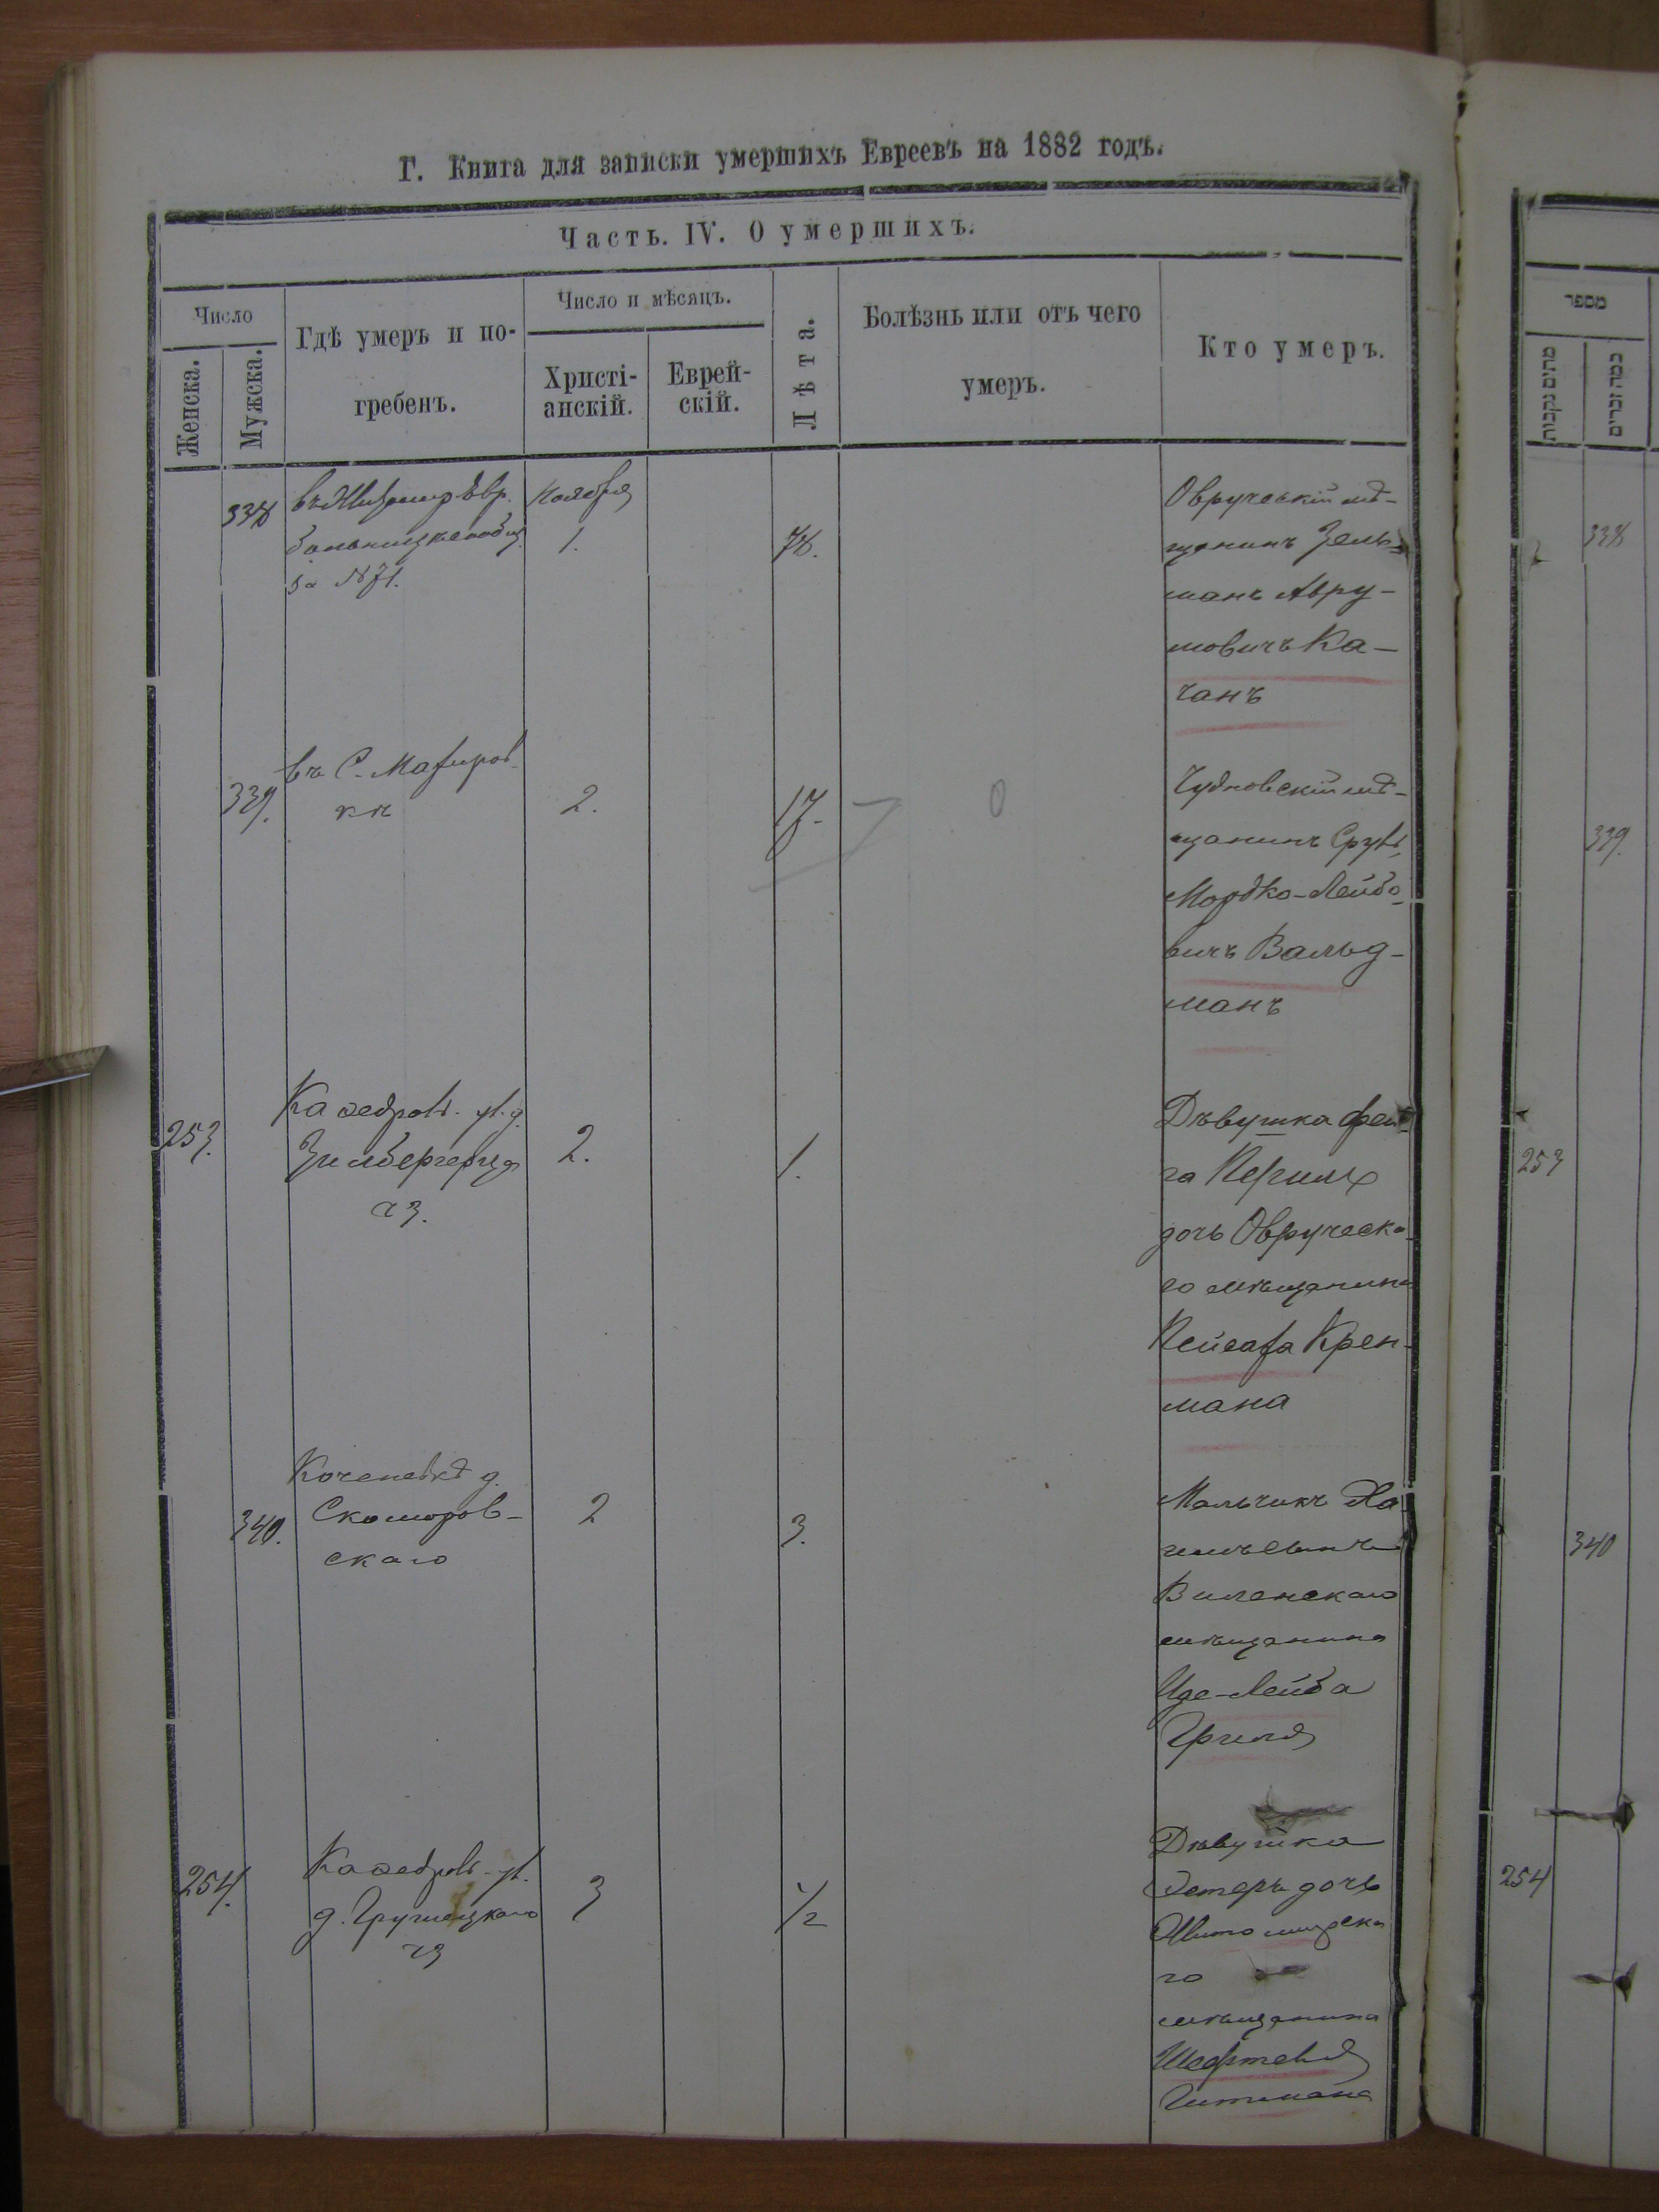 Г. Книга для записки умершихъ Евреевъ на 1882 годъ.
Часть. IV. О умершихъ.
Число
Женска.
Мужска.
Гдѣ умеръ и по-
гребенъ.
Число и мѣсяцъ.
Христі-
анскій.
Еврей-
скій.
Лѣта.
Болѣзнь или отъ чего
умеръ.
Кто умеръ.
338
въ Житомир Евр.
больницѣ
за № 71.
Ноября
1.
78.
Овручскій мѣ-
щанинъ Зель-
манъ Авру-
мовичъ Ка-
чанъ
339.
въ С.
кѣ
2.
17.
0
Чудновскій мѣ-
щанинъ Сруль
Мордко-Лейбо-
вичъ Вальд-
манъ
253.
Каѳедральн. ул. д.
Зильбергерца
ч 3.
2.
1.
Дѣвушка Фей-
га
дочь Овруческа-
го мѣщанина
Пейсаха Крен-
мана
340.
Коченевкѣ д.
Скоморов-
скаго
2
3.
Мальчикъ Ха
сынъ
Виленскаго
мѣщанина
Иде-Лейба
254.
Каѳедрал. ул.
д. Грушецкаго
ч 3
3
1/2
Дѣвушка
Эстеръ дочь
Житомирска
го
мѣщанина
Шефтеля
Гитмана
מספר
מתים נקבות
כמה זכרים
338
339.
253
340
254